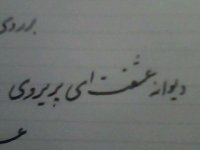 دیوانه عشقت ای پریروی